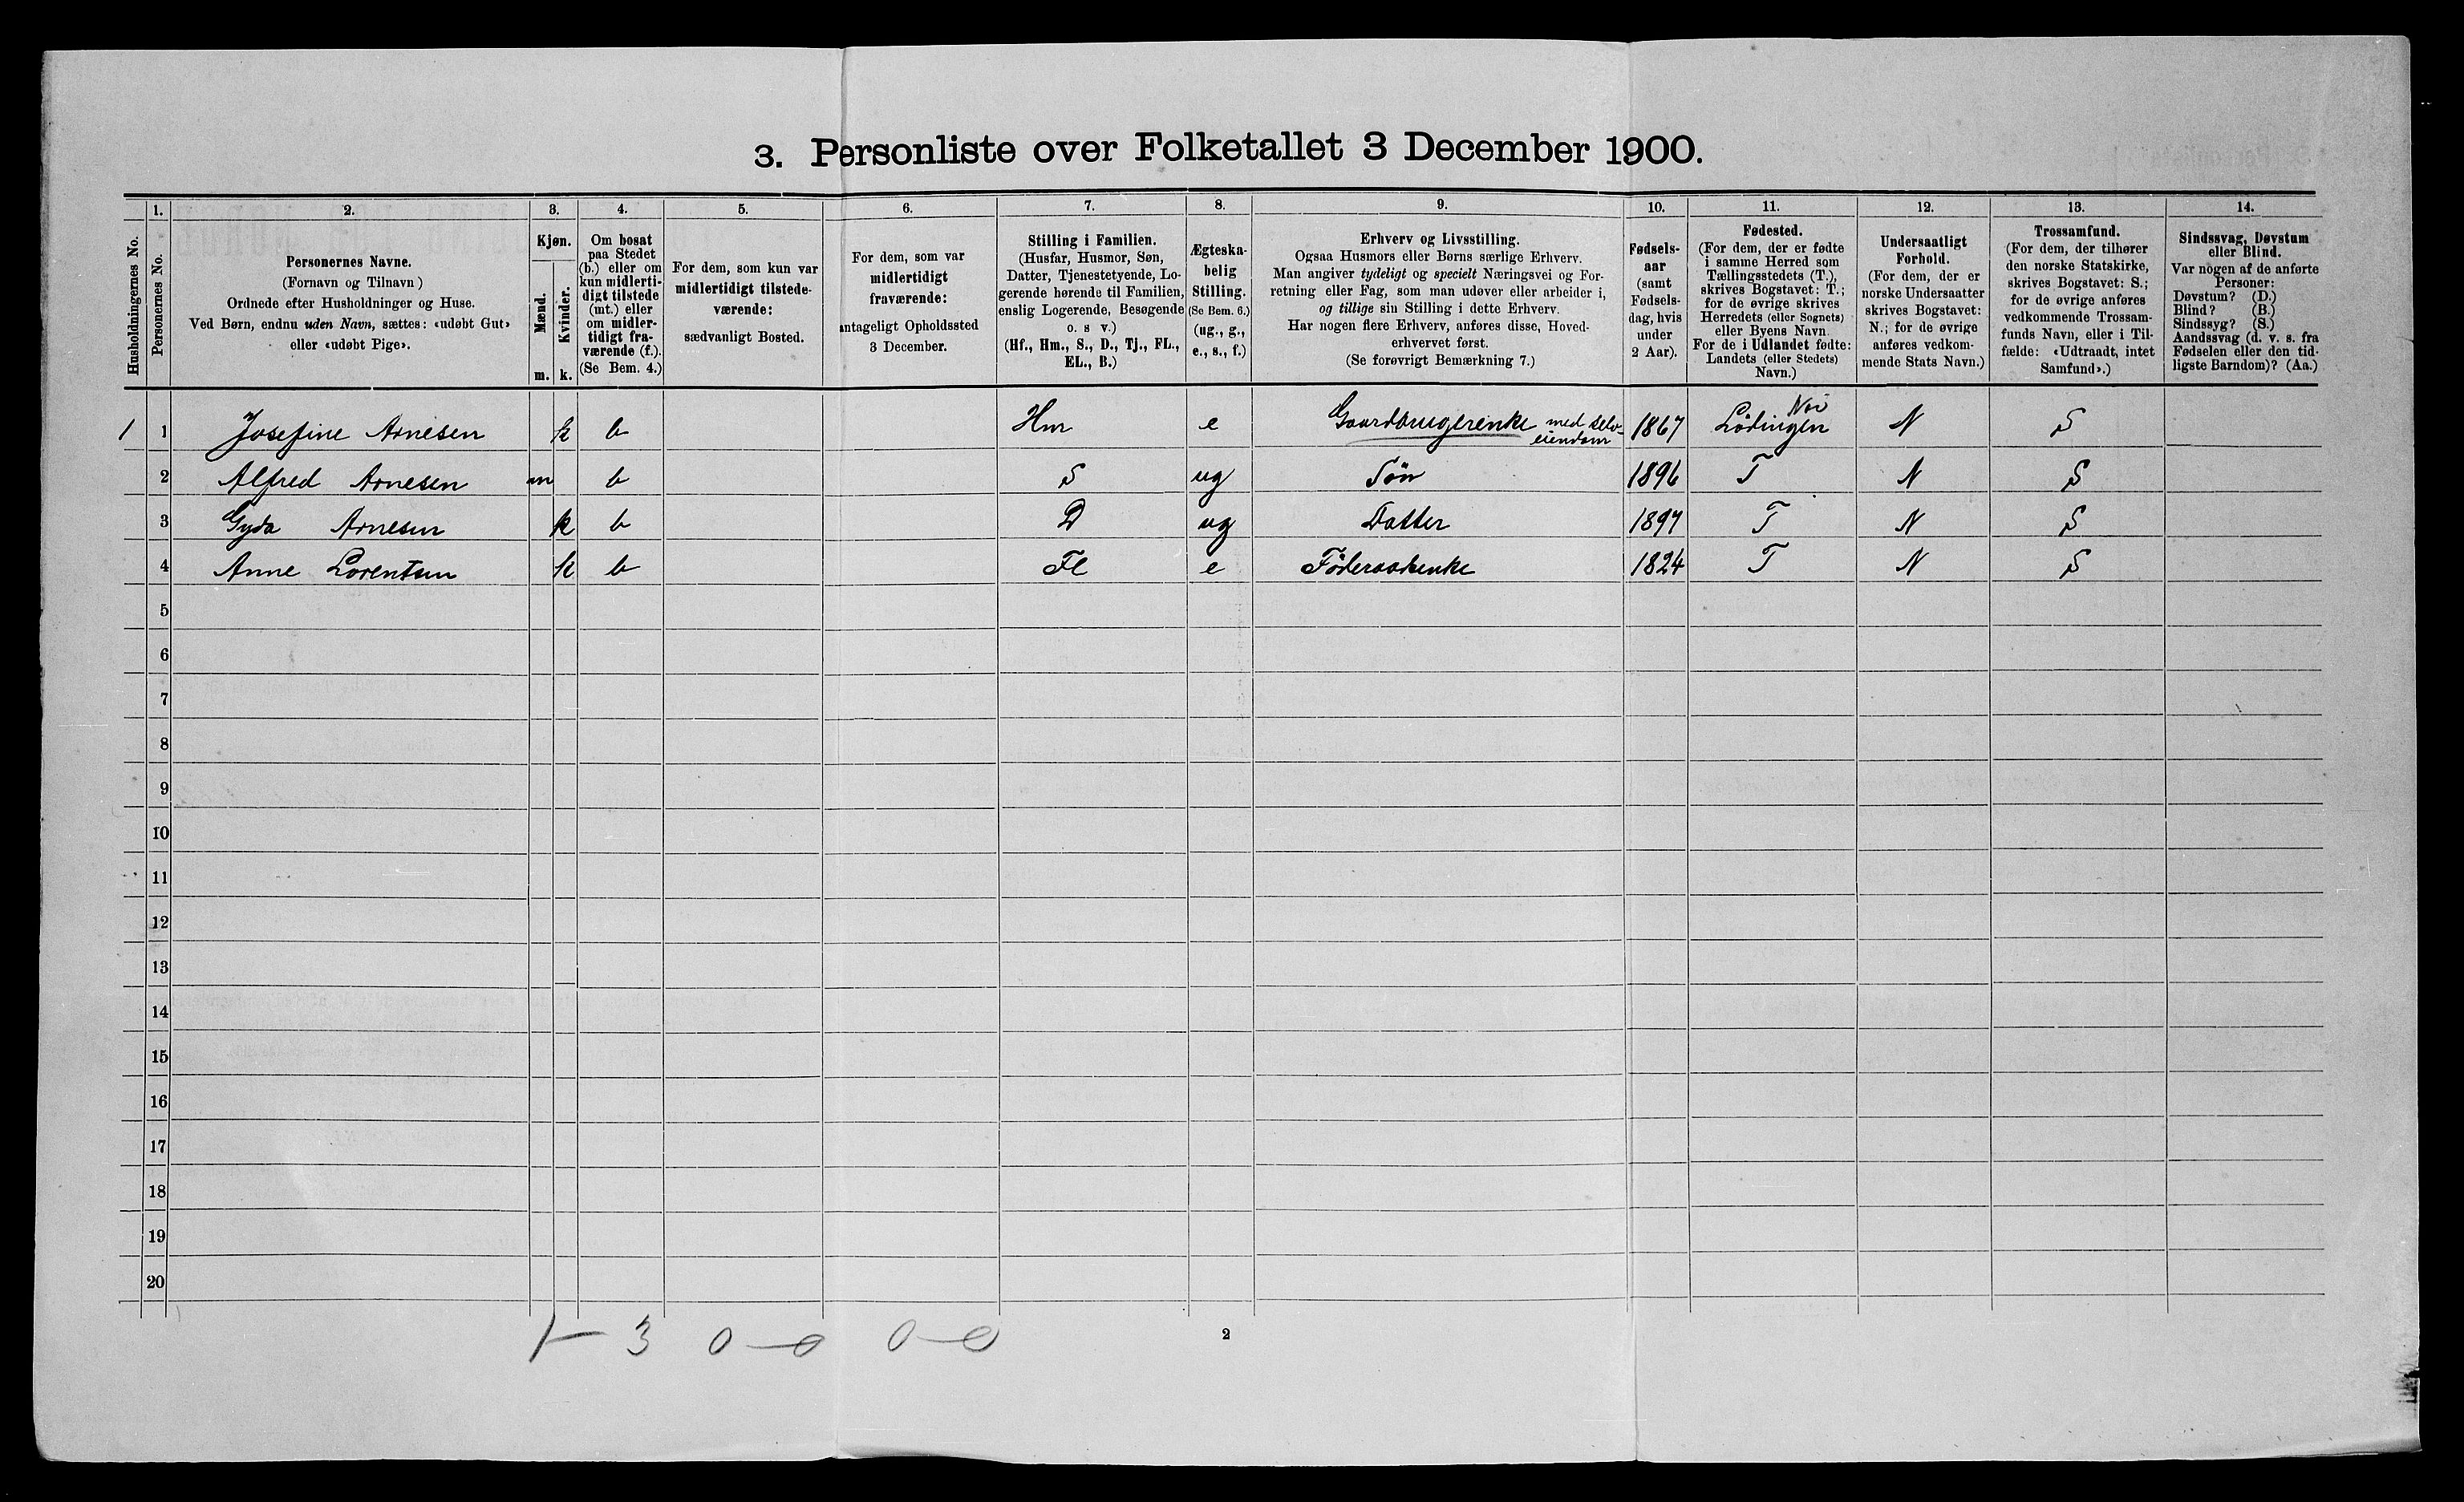 3. Personliste over Folketallet 3 December 1900.
1. 2. 3. 4. 5. 6. 7. 8. 9. 10. 11. 12. 13. 14.
Husholdningernes No.
Personernes No.
Personernes Navne.
(Fornavn og Tilnavn)
Ordnede efter Husholdninger og Huse.
Ved Børn, endnu uden Navn, sættes: «udøbt Gut»
eller «udøbt Pige».
Kjøn.
Mænd.
Kvinder.
m. k.
Om bosat
paa Stedet
(b.) eller om
kun midlerti-
digt tilstede
(mt.) eller
om midler-
tidigt fra-
værende (f.).
(Se Bem. 4.)
For dem, som kun var
midlertidigt tilstede-
værende:
sædvanligt Bosted.
For dem, som var
midlertidigt
fraværende:
antageligt Opholdssted
3 December.
Stilling i Familien.
(Husfar, Husmor, Søn,
Datter, Tjenestetyende, Lo-
gerende hørende til Familien,
enslig Logerende, Besøgende
o. s v.)
(Hf., Hm., S., D., Tj., FL.,
EL., B.)
Ægteska-
belig
Stilling.
(Se Bem. 6.)
(ug., g.,
e., s., f.)
Erhverv og Livsstilling.
Ogsaa Husmors eller Børns særlige Erhverv.
Man angiver tydeligt og specielt Næringsvei og For-
retning eller Fag, som man udøver eller arbeider i,
og tillige sin Stilling i dette Erhverv.
Har nogen flere Erhverv, anføres disse, Hoved-
erhvervet først.
(Se forøvrigt Bemærkning 7.)
Fødsels-
aar
(samt
Fødsels-
dag, hvis
under
2 Aar).
Fødested.
(For dem, der er fødte
i samme Herred som
Tællingsstedets (T.),
skrives Bogstavet: T.;
for de øvrige skrives
Herredets (eller Sognets)
eller Byens Navn.
For de i Udlandet fødte:
Landets (eller Stedets)
Navn.)
Undersaatligt
Forhold.
(For dem, der er
norske Undersaatter
skrives Bogstavet:
N.; for de øvrige
anføres vedkom-
mende Stats Navn.)
Trossamfund.
(For dem, der tilhører
den norske Statskirke,
skrives Bogstavet: S.;
for de øvrige anføres
vedkommende Trossam-
funds Navn, eller i Til-
fælde: «Udtraadt, intet
Samfund».)
Sindssvag, Døvstum
eller Blind.
Var nogen af de anførte
Personer:
Døvstum? (D.)
Blind? (B.)
Sindssyg? (S.)
Aandssvag (d. v. s. fra
Fødselen eller den tid-
ligste Barndom)? (Aa.)
1 1 Josefine Arnesen k b Hm e Gaardbrugerenke med selv-eiendom 1867 Lödingen N S
2 Alfred Arnesen m b S ug Sön 1896 T N S
3 Gyda Arnesen k b D ug Datter 1897 T N S
4 Anne Lorentsen k b Fl e Föderaadsenke 1824 T N S
5
6
7
8
9
10
11
12
13
14
15
16
17
18
19
20
1 – 3 0 – 0 0 – 0
2